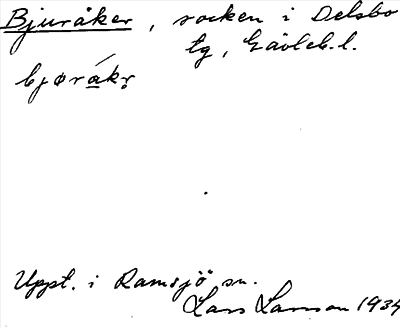 Bjuråker, socken i Delsbo
tg, Gävleb.l.
bjørákr̥
Uppt. i Ramsjö sn.
Lars Larsson 1934